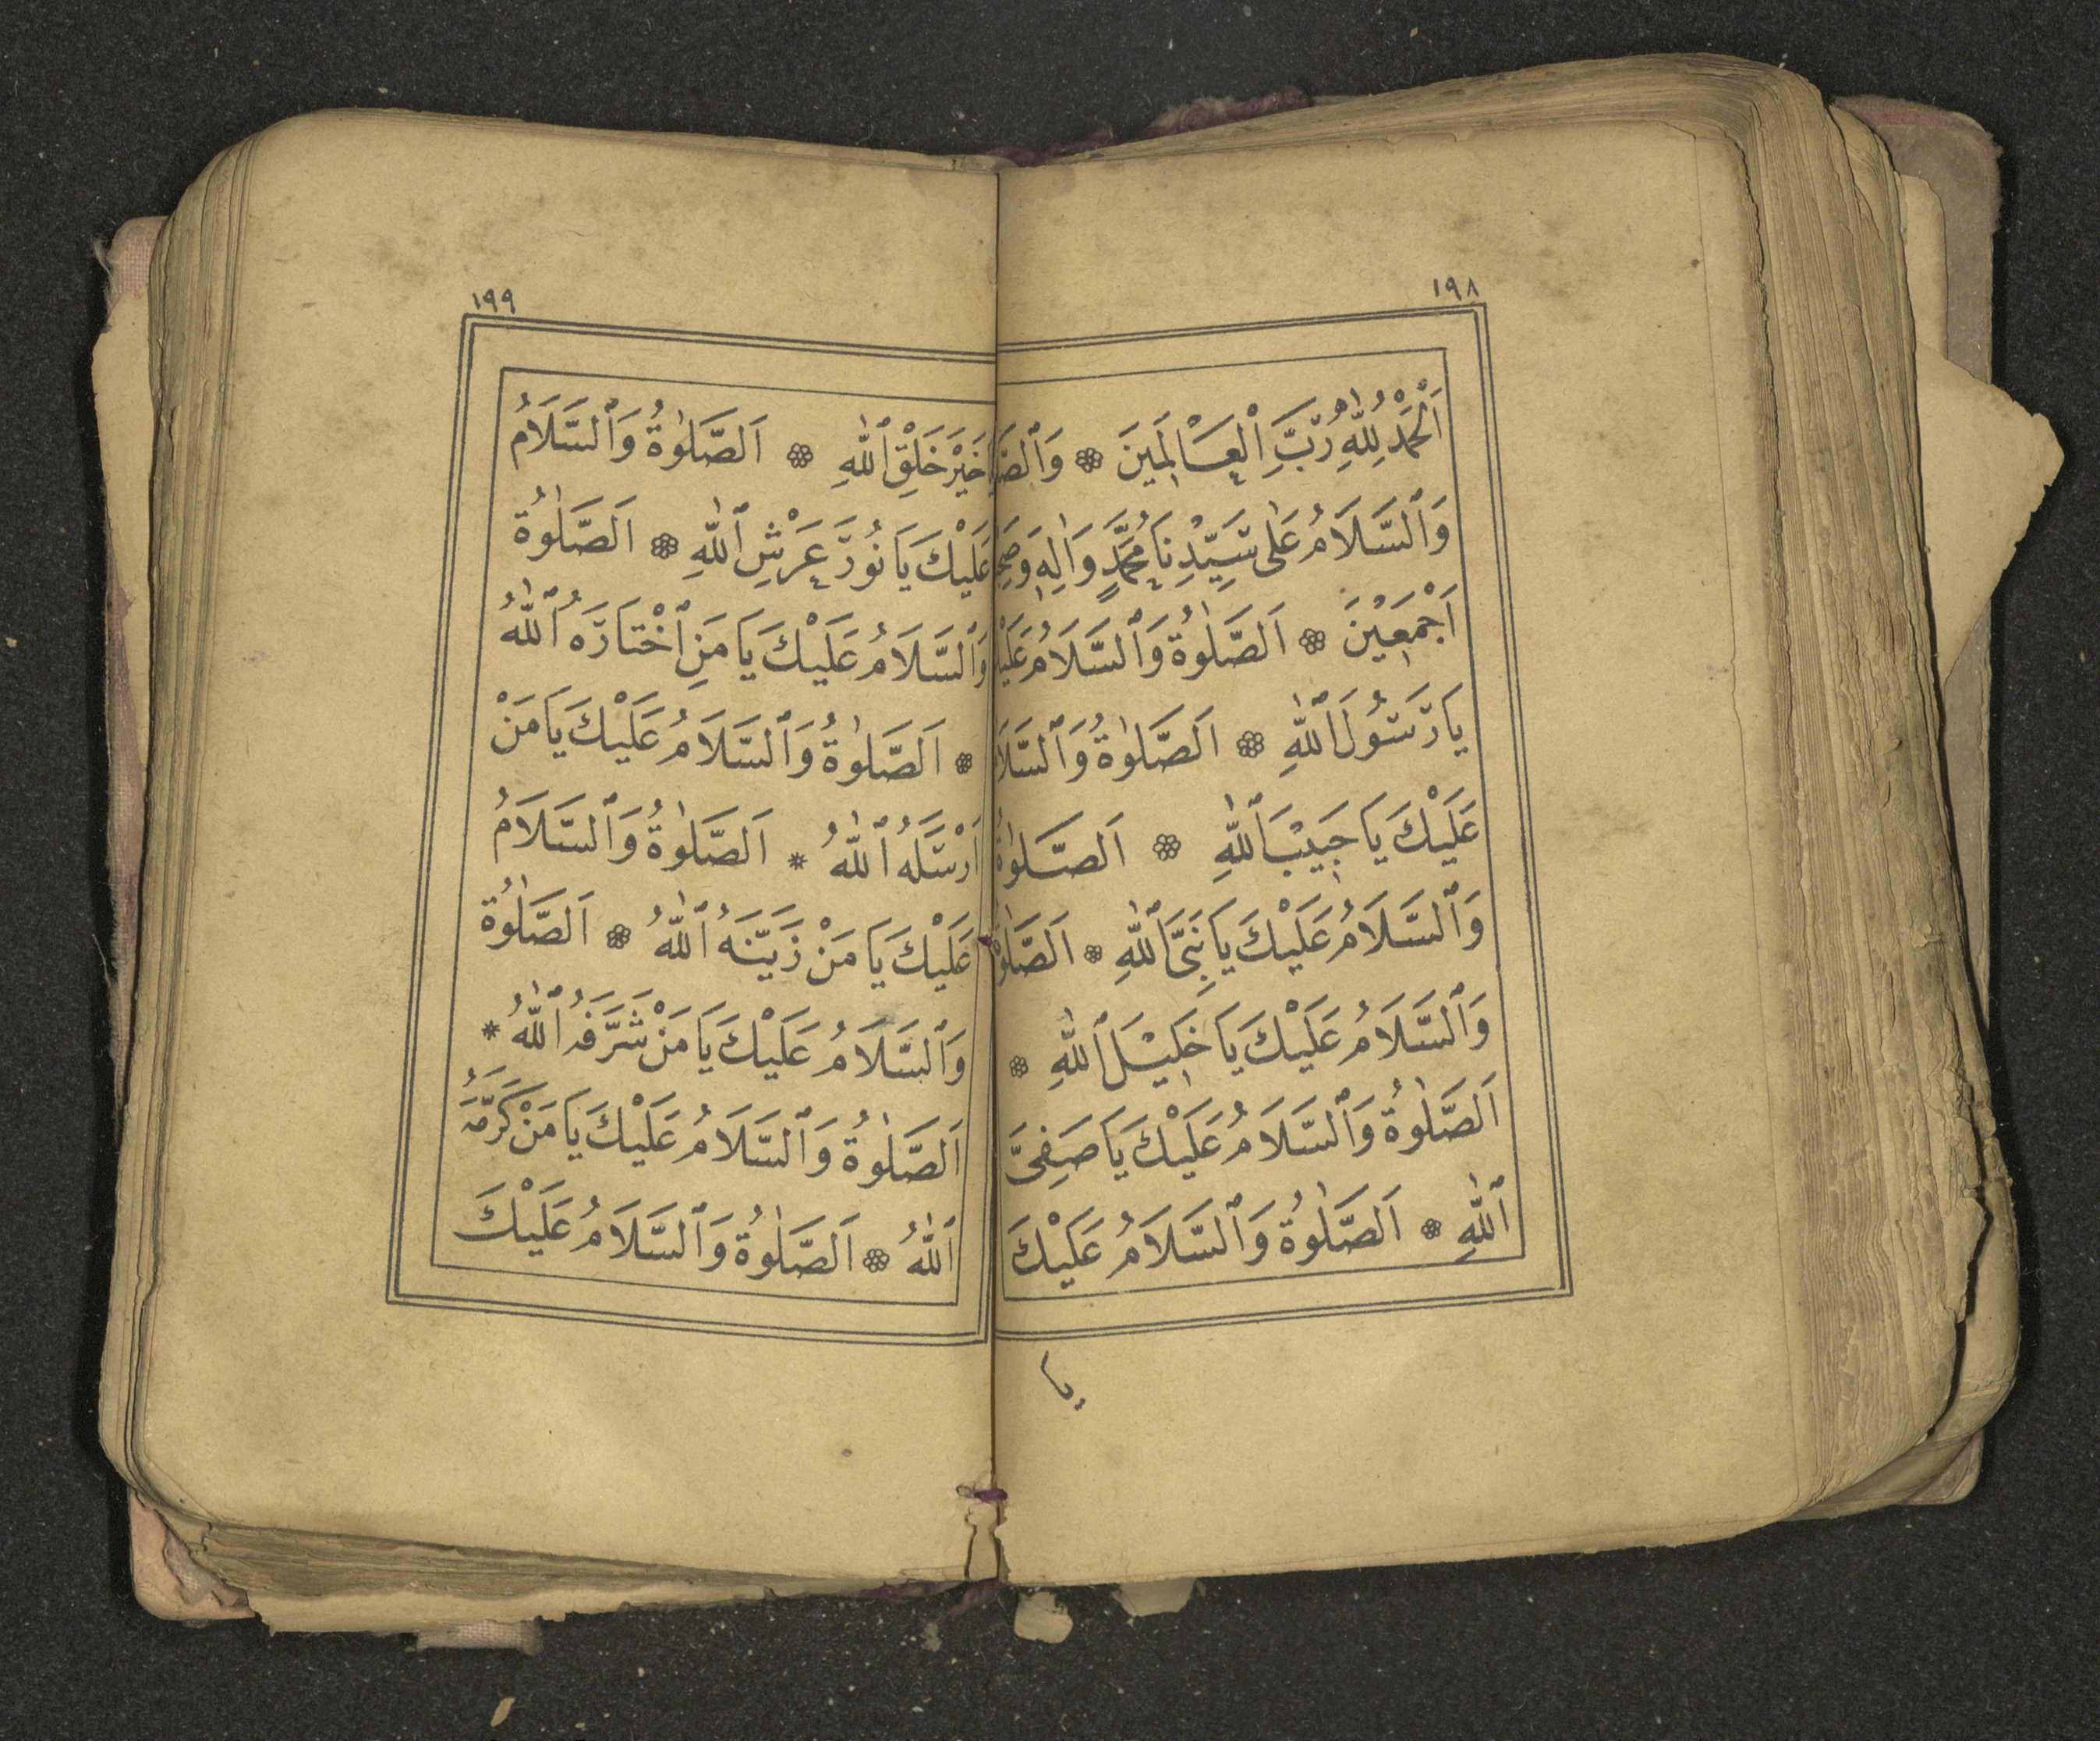 ١٩٨
اَلْحَمْدُ لِلّٰهِ رَبِّ الْعَالَمِينَ ❁
وَٱلسَّلَامُ عَلٰى سَيِّدِنَا مُحَمَّدٍ وَاٰلِهِ
اَجْمَعِيْنَ ❁ اَلصَّلٰوةُ وَٱلسَّلَامُ
يَا رَسُوْلَ ٱللّٰهِ ❁ اَلصَّلٰوةُ وَٱلسَّلَا
عَلَيْكَ يَا حَبِيْبَ ٱللّٰهِ ❁ اَلصَّلٰوةُ
وَٱلسَّلَامُ عَلَيْكَ يَا نَبِىَّ ٱللّٰهِ ❁ اَلصَّلٰوةُ
وَٱلسَّلَامُ عَلَيْكَ يَا خَلِيْلَ ٱللّٰهِ ❁
اَلصَّلٰوةُ وَٱلسَّلَامُ عَلَيْكَ يَا صَفِىَّ
ٱللّٰهِ ❁ اَلصَّلٰوةُ وَٱلسَّلَامُ عَلَيْكَ
يا
١٩٩
خَيْرَ خَلْقِ ٱللّٰهِ ❁ اَلصَّلٰوةُ وَٱلسَّلَامُ
عَلَيْكَ يَا نُوْرَ عَرْشِ ٱللّٰهِ ❁ اَلصَّلٰوةُ
وَٱلسَّلَامُ عَلَيْكَ يَا مَنِ ٱخْتَارَهُ ٱللّٰهُ
❁ اَلصَّلٰوةُ وَٱلسَّلَامُ عَلَيْكَ يَا مَنْ
اَرْسَلَهُ ٱللّٰهُ * اَلصَّلٰوةُ وَٱلسَّلَامُ
عَلَيْكَ يَا مَنْ زَيَّنَهُ ٱللّٰهُ ❁ اَلصَّلٰوةُ
وَٱلسَّلَامُ عَلَيْكَ يَا مَنْ شَرَّفَهُ ٱللّٰهُ *
اَلصَّلٰوةُ وَٱلسَّلَامُ عَلَيْكَ يَا مَنْ كَرَّمَهُ
اَللّٰهُ ❁ اَلصَّلٰوةُ وَٱلسَّلَامُ عَلَيْكَ